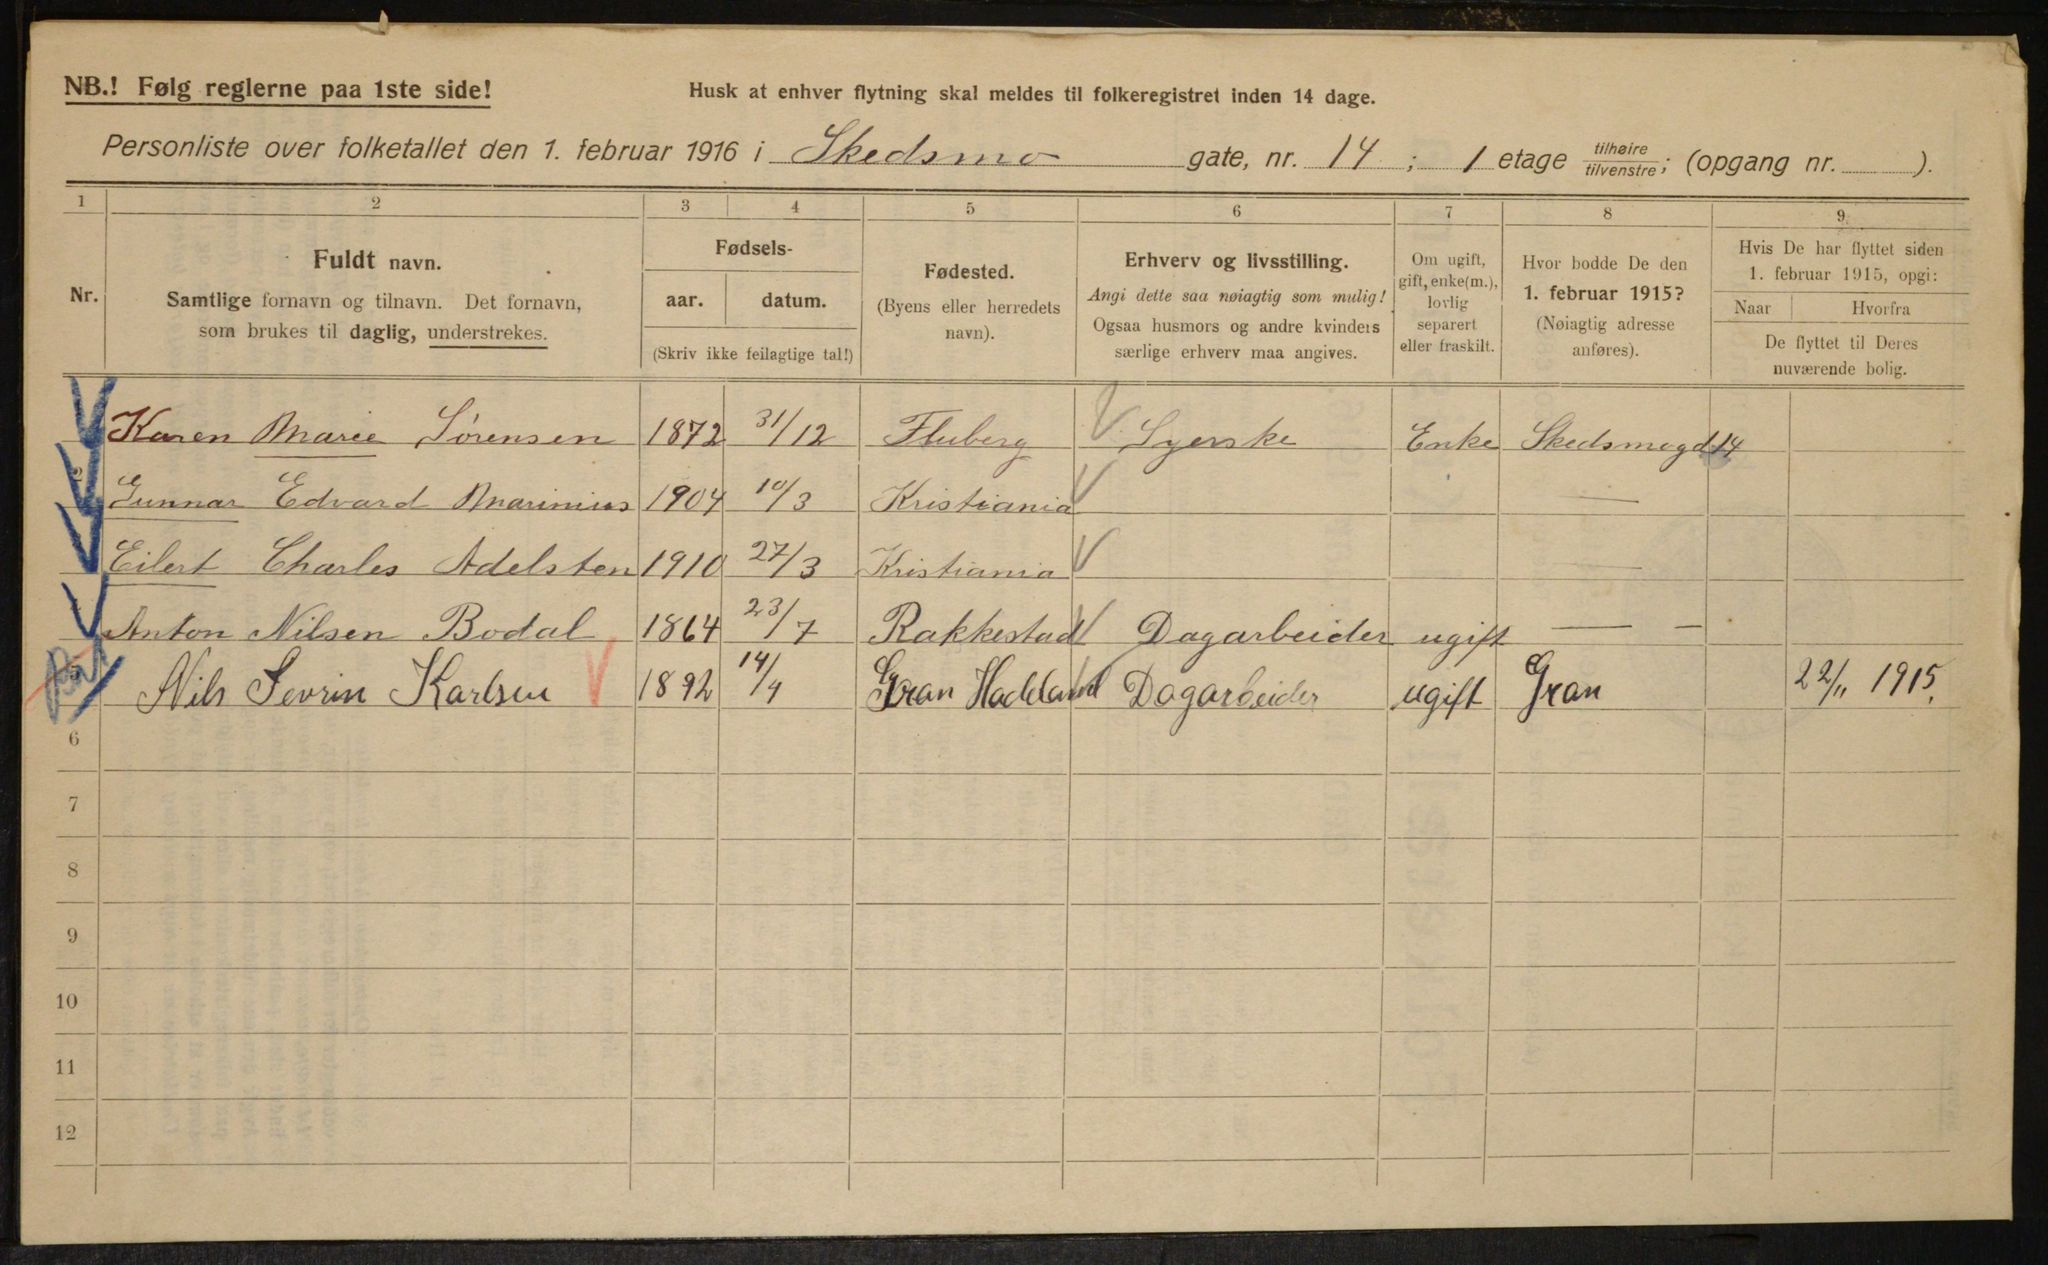 NB.! Følg reglerne paa 1ste side!
Husk at enhver flytning skal meldes til folkeregistret inden 14 dage.
Personliste over folketallet den 1. februar 1916 i Skedsmo gate, nr. 14 ; 1 etage tilhøire/tilvenstre; (opgang nr. ).
1 2 3 4 5 6 7 8 9
Nr.
Fuldt navn.
Samtlige fornavn og tilnavn. Det fornavn,
som brukes til daglig, understrekes.
Fødsels-
aar. datum.
(Skriv ikke feilagtige tal!)
Fødested.
(Byens eller herredets
navn).
Erhverv og livsstilling.
Angi dette saa nøiagtig som mulig!
Ogsaa husmors og andre kvinders
særlige erhverv maa angives.
Om ugift,
gift, enke(m.),
lovlig
separert
eller fraskilt.
Hvor bodde De den
1. februar 1915?
(Nøiagtig adresse
anføres).
Hvis De har flyttet siden
1. februar 1915, opgi:
Naar Hvorfra
De flyttet til Deres
nuværende bolig.
Karen Marie Sørensen 1872 31/12 Fluberg Syerske Enke Skedsmogd 14
2 Gunnar Edvard Marinius 1904 10/3 Kristiania —
Eilert Charles Adelsten 1910 27/3 Kristiania —
Anton Nilsen Bodal 1864 23/7 Rakkestad Dagarbeider ugift — –
5 Nils Sevrin Karlsen 1892 14/4 Gran Hadeland Dagarbeider ugift Gran 22/11 1915.
6
7
8
9
10
11
12